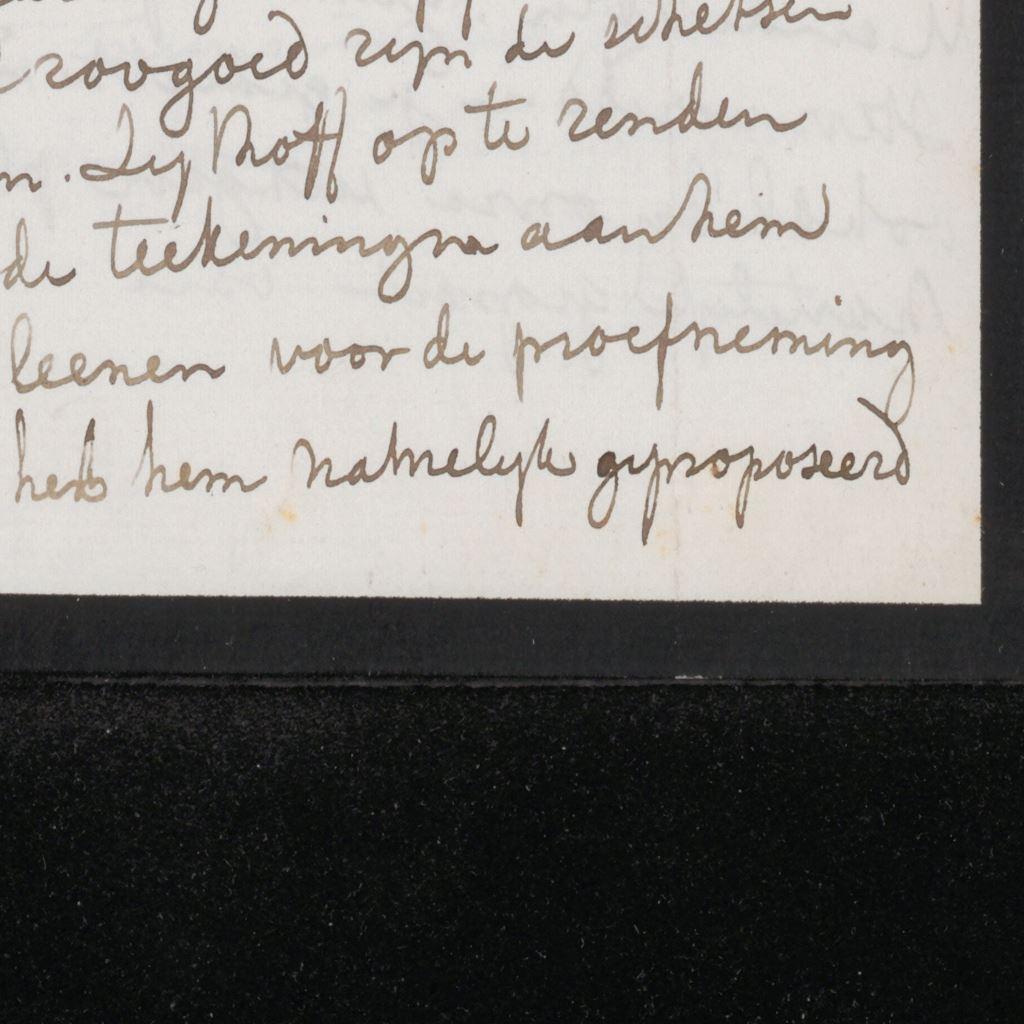 zoo goed zijn de schetsen
n. Sijthoff op te zenden
de teekeningen aan hem
leenen voor de proefneming
heb hem namelijk geproposeerd